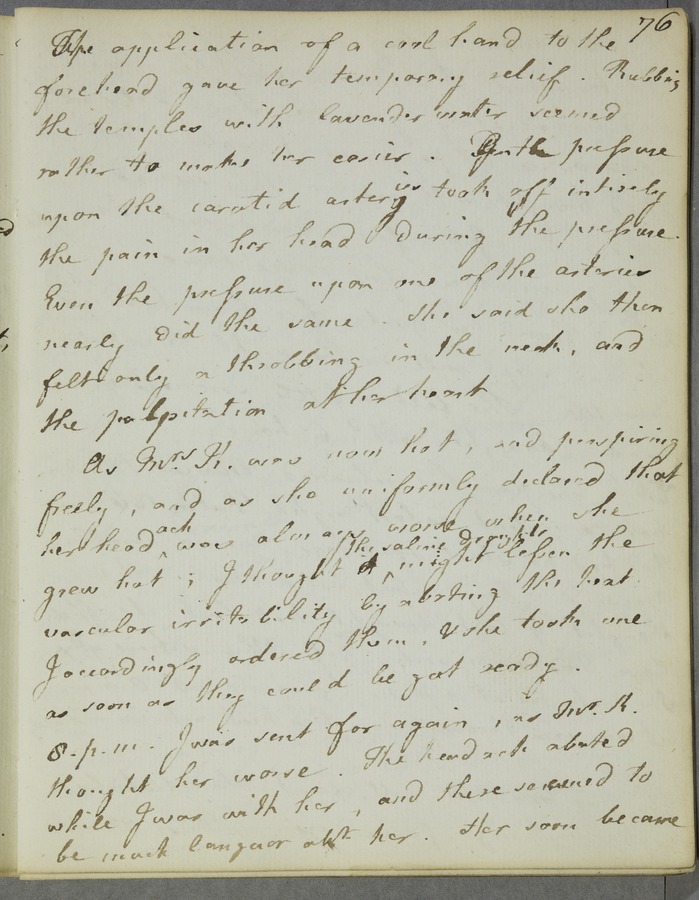 76
The application of a cool hand to the
forehead gave her temporary relief. Rubbing
the temples with lavender water seemed
rather to make her easier. Gentle pressure
upon the carotid arteries took off intirely
the pain in her head during the pressure.
Even the pressure upon one of the arteries
nearly did the same. She said she then
felt only a throbbing in the neck, and
the palpitation at her heart
As Mrs. K. was now hot, and perspiring
freely, and as she uniformly declared that
her headach was always worse when she
grew hot; I thought the saline draughts might lessen the
vascular irritability by abating the heat
I accordingly ordered them, & she took one
as soon as they could be got ready.
8. p.m. I was sent for again, as Mr. K.
thought her worse. The headach abated
while I was with her, and there seemed to
be much languor abt. her. Her soon became